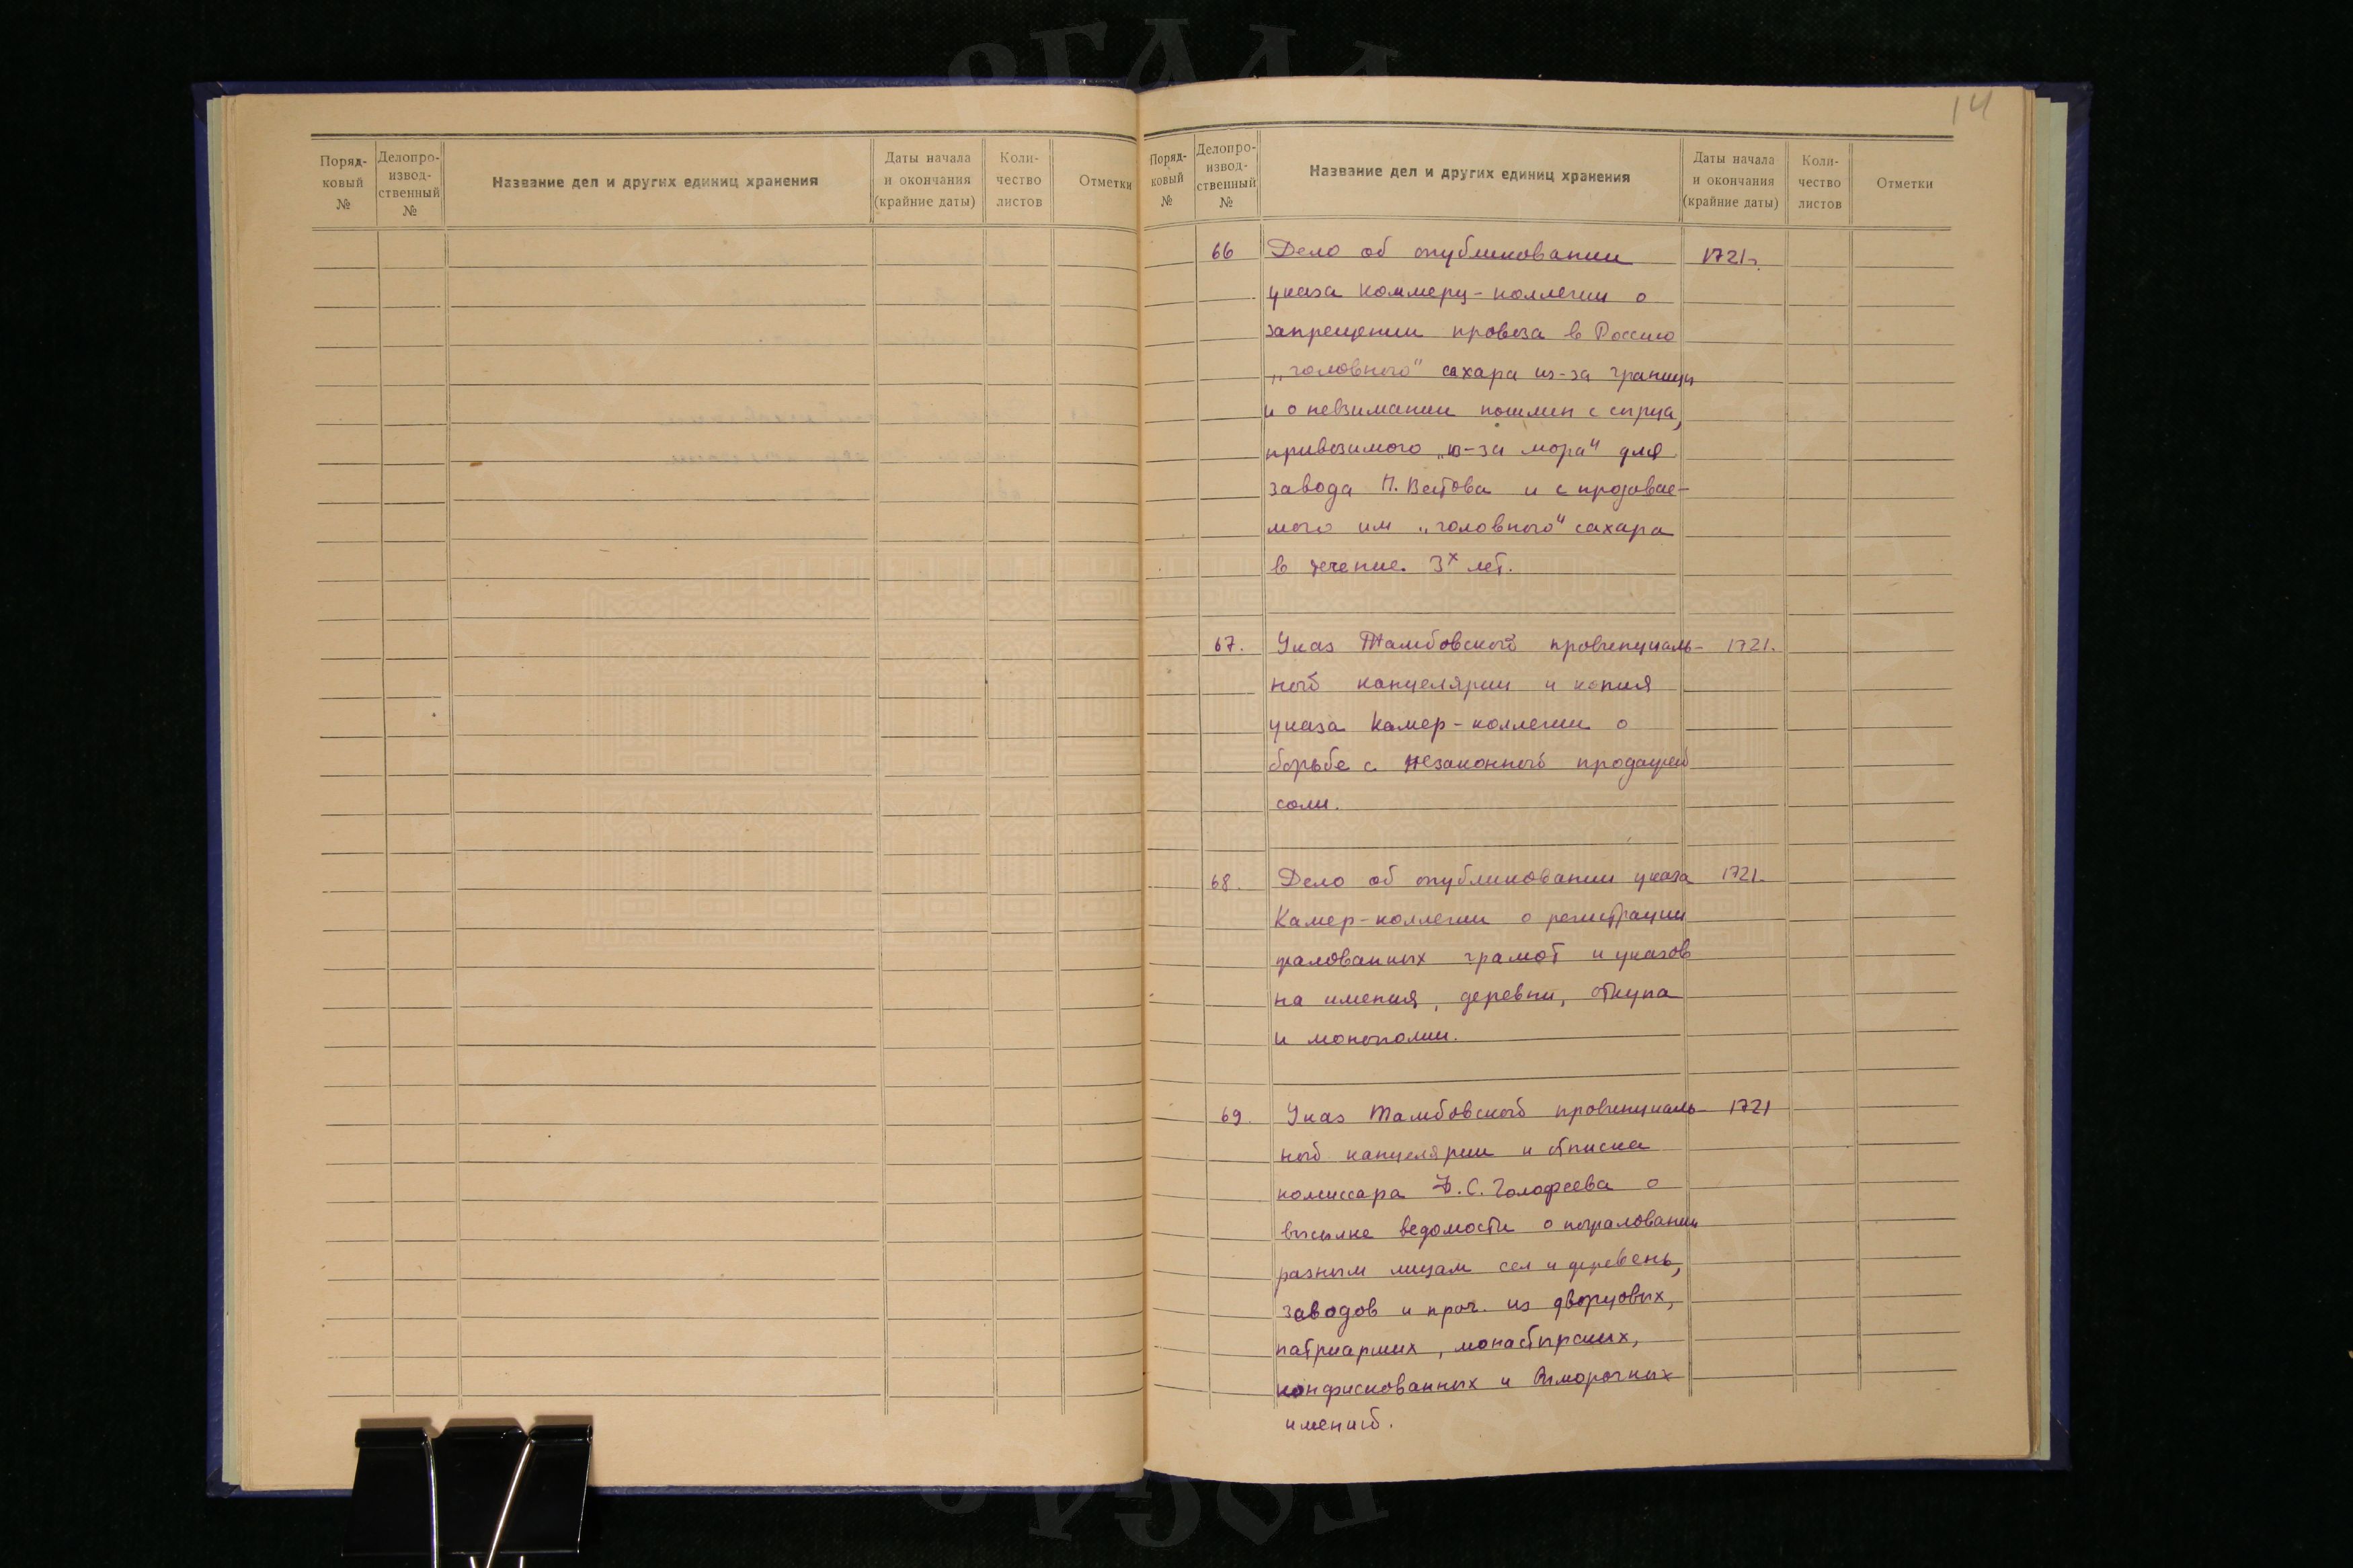 14
Поряд-
ковый
№
Делопро-
извод-
ственный
№
Название дел и других единиц хранения
Даты начала
и окончания
(крайние даты)
Коли-
чество
листов
Отметки
Поряд-
ковый
№
Делопро-
извод-
ственный
№
Название дел и других единиц хранения
Даты начала
и окончания
(крайние даты)
Коли-
чество
листов
Отметки
66 Дело об опубликовании 1721г.
указа Коммерц-коллегии о
запрещении провоза в Россию
„головного" сахара из-за границы
и о невзимании пошлин с сырца,
привозимого „из-за моря" для
завода П. Вестова и с продавае-
мого им „головного" сахара
в течение 3х лет.
67. Указ Тамбовской провинциаль- 1721.
ной канцелярии и копия
указа Камер-коллегии о
борьбе с незаконной продажей
соли.
68. Дело об опубликовании указа 1721.
Камер-коллегии о регистрации
жалованных грамот и указов
на имения, деревни, откупа
и монополии.
69. Указ Тамбовской провинциаль- 1721
ной канцелярии и отписка
комиссара Ф. С. Голофеева о
высылке ведомости о пожаловании
разным лицам сел и деревень,
заводов и проч. из дворцовых,
патриарших, монастырских,
конфискованных и выморочных
имений.